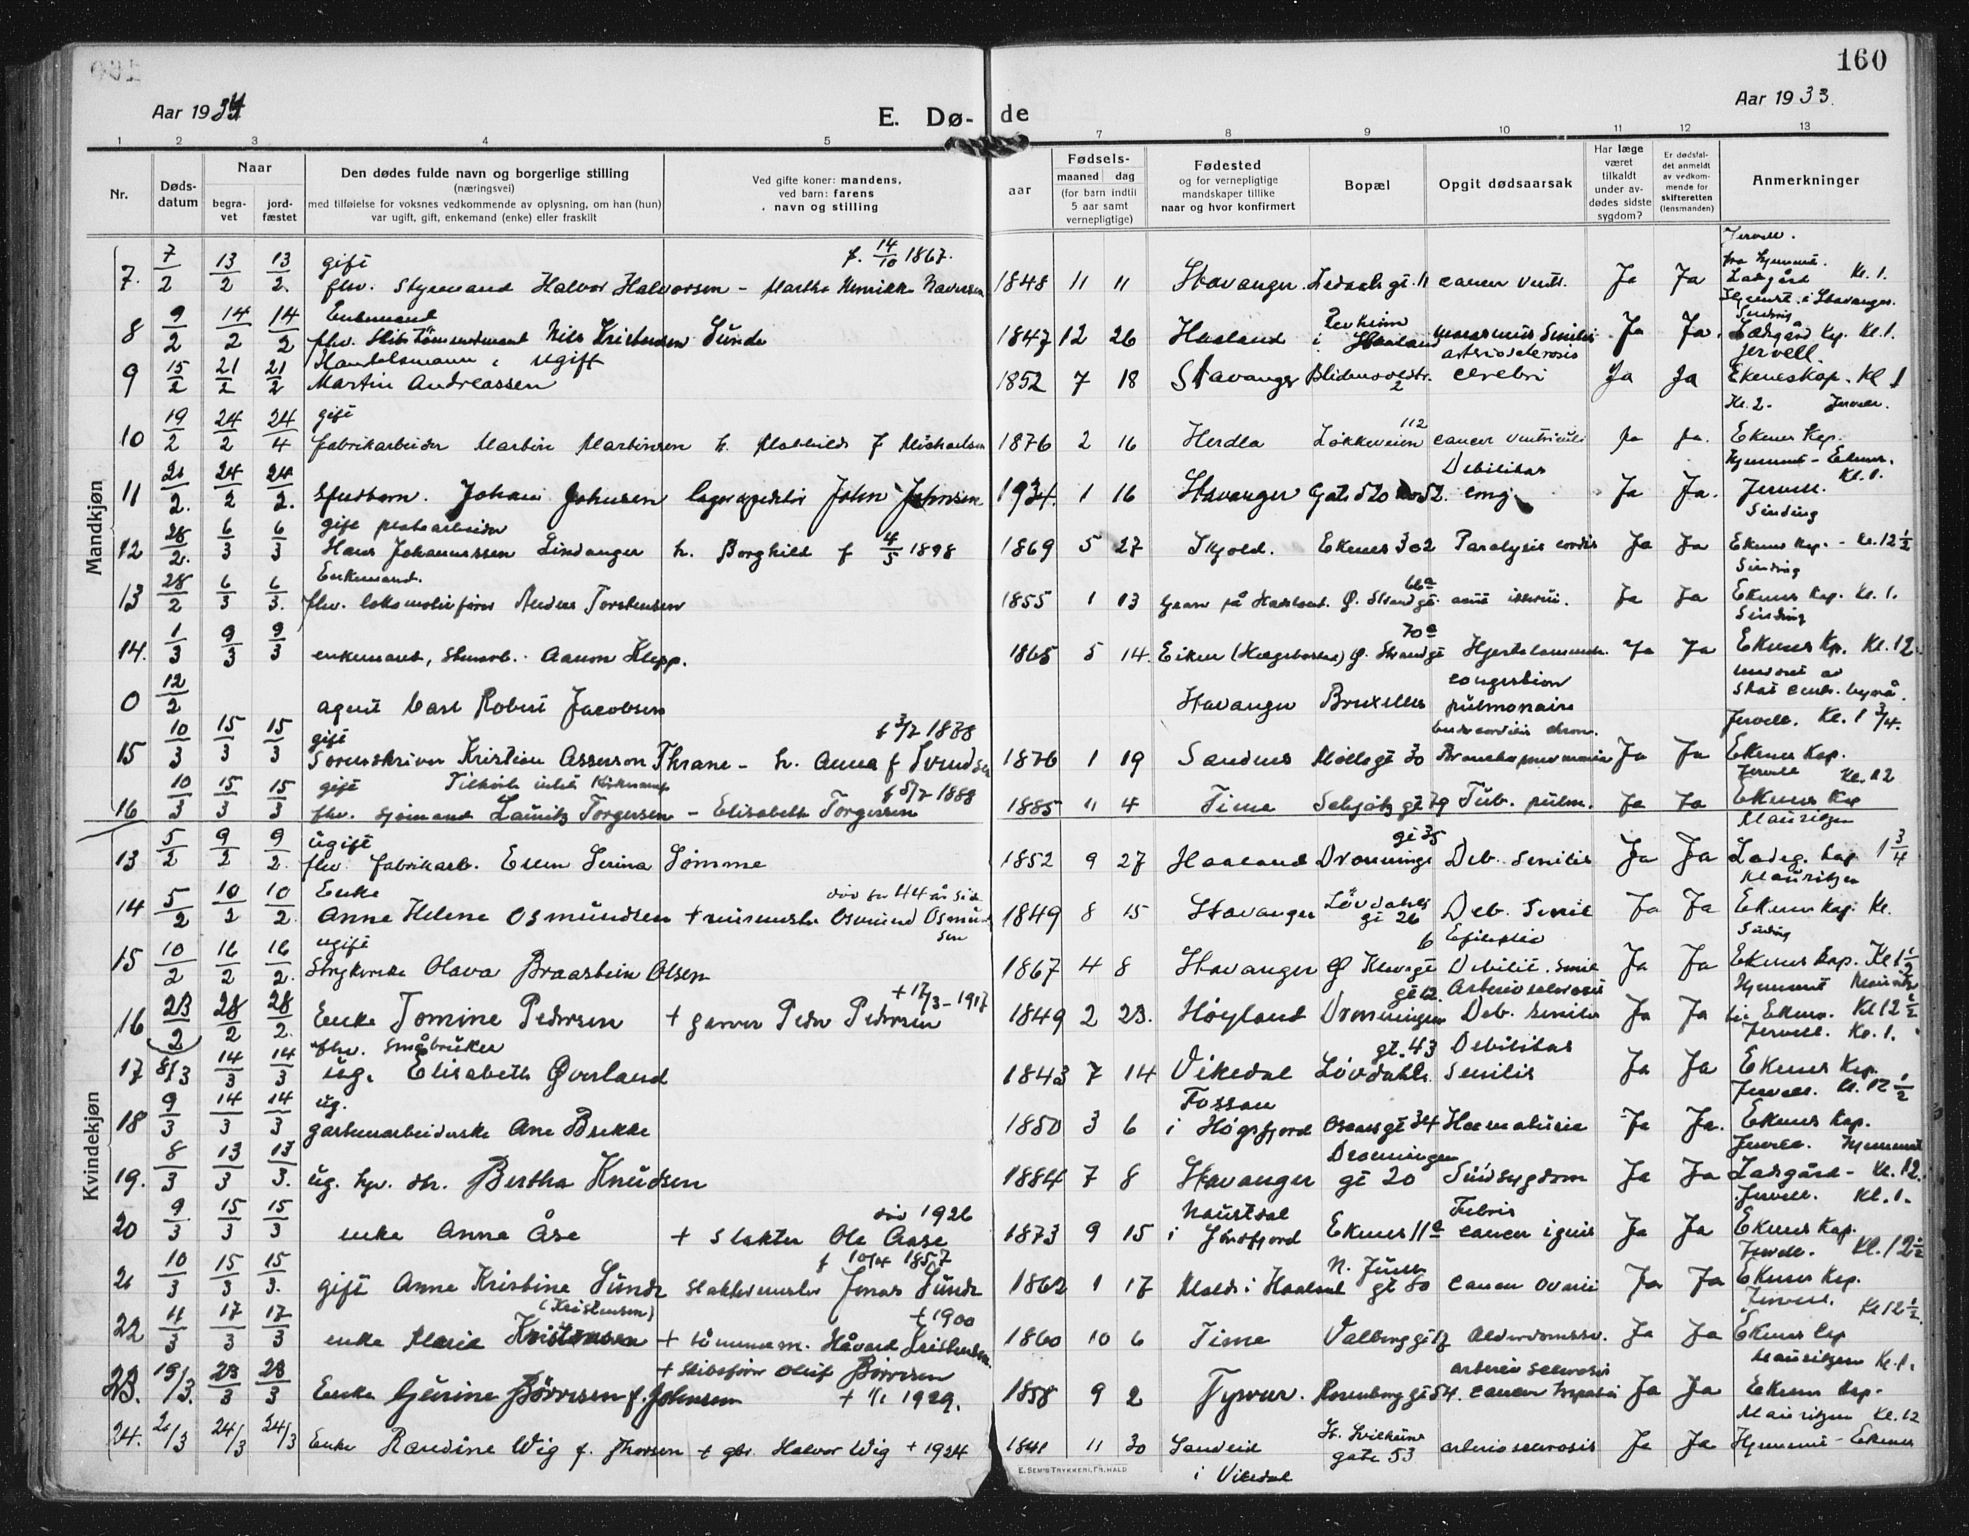 160
Aar 1934
E. Dø- de
Aar 1933.
1 2 3 4 5 7 8 9 10 11 12 13
Nr.
Døds-
datum
Naar
begra-
vet
jord-
fæstet
Den dødes fulde navn og borgerlige stilling
(næringsvei)
med tilføielse for voksnes vedkommende av oplysning, om han (hun)
var ugift, gift, enkemand (enke) eller fraskilt
Ved gifte koner: mandens,
ved barn: farens
navn og stilling
Fødsels-
aar
maaned dag
(for barn indtil
5 aar samt
vernepligtige)
Fødested
og for vernepligtige
mandskaper tillike
naar og hvor konfirmert
Bopæl
Opgit dødsaarsak
Har læge
været
tilkaldt
under av-
dødes sidste
sygdom?
Er dødsfal-
det anmeldt
av vedkom-
mende for
skifteretten
(lensmanden)
Anmerkninger
Mandkjøn
gift f. 14/10 1867. Jervell.
7. 7/2 13/2 13/2. fhv. Styrmand Halvor Halvorsen – Martha 1848 11 11 Stavanger. Ledaals gt. 11 cancer ventr. Ja Ja Kl. 1.
Enkemand
8 9/2 14/2 14/2 fhv. Nils Kristensen Sunde 1847 12 26 Haaland i Haaland marasmus senilis Ja Ja. Kl. 1.
Handelsmann ugift arteriosclerosis Jervell.
9 15/2 21/2 21/2 Martin Andreassen 1852 7 18 Stavanger 2 cerebri Ja Ja Ekeneskap. Kl 1
gift 112 Kl. 2. Jervell.
10 19/2 24/2 24/4 fabrikarbeider Martin Martinsen h. Mathilde f Michaelsen 1876 2 16 Herdla Løkkeveien cancer ventriculi Ja Ja. Ekenes Kap.
Debilitas Kl. 1.
11 21/2. 24/2 24/2. Johan Johnsen John Johnsen 1934. 1 16 Stavanger cong. Ja Ja. Jervell.
gift Sinding
12 28/2. 6/3 6/3 Hans Johannessen Lindanger h. Borghild f 4/5 1898 1869 5 27 Skjold. Ekenes 302 Paralysis cordis Ja Ja Ekenes Kap. – Kl. 12 1/2
Enkemand. 66a Sinding
13 28/2 6/3 6/3. fhv. lokomotivfører Anders Torstensen 1855 1 13 Gran på Hadeland. Ø. Strandgt. Ja Ja Ekenes Kap. Kl. 1.
70a Sinding
14. 1/3 9/3 9/3 enkemand, Aanon Klepp. 1865 5 14. Eiken (Hægebostad) Ø. Strandgt Ja Ja Ekenes Kp. Kl. 12.
congestion
0 12/2 agent Carl Robert Jacobsen Stavanger Bruxelles pulmonaire
gift f 3/7 1878 Endocarditis chron. Jervell. Kl. 1 3/4.
15 10/3 15/3 15/3 Sorenskriver Kristian Assersen Thrane – h. Anna f Svendsen 1876 1 19 Sandnes Møllegt 30 Bronchopneumonia Ja Ja Ekenes Kap.
gift f 5/7 1888 Jervell Kl. 12
16 10/3 15/3 15/3 fhv. sjømand Lauritz Torgersen – Elisabeth Torgersen 1885 11 4 Time Schjøtz gt 79 Tub. pulm. Ja Ja Ekenes Kap
Kvindekjøn
ugift gt 35 Mauritzen
13 5/2 9/2 9/2. fhv. fabrikarb. Elen Serina Sømme 1852 9 27 Haaland Dronnings Deb. senilis Ja Ja Ladeg. kap 1 3/4
Enke død for 44 år sid Mauritzen
14 5/2 10/2 10/2. Anne Helene Osmundsen + murmester Osmund Osmundsen 1849 8 15 Stavanger Løvdahls gt 26 Deb. Senil Ja Ja Ekenes Kap. Kl.
ugift 6 Epilepsia Sinding
15 10/2 16/2 16/2. Strykerske Olava Braastein Olsen 1867 4 8 Stavanger Ø Klevegt Debilit. senil Ja Ja Ekenes Kap. Kl 1 1/2
+ 17/3-1917 gt 12. Arteriosclerosis Hjemmet Mauritz
16 23/2 28/2 28/2. Enke Tomine Pedersen + garver Peder Pedersen 1849 2 23. Høyland Dronningen Deb. senilis Ja Ja til Ekenes. Kl 12 1/2
fhv. småbruker gt. 43 Debilitas Jervell. Kl. 1.
17 8/3 14/3 14/3 ug. Elisabeth Øverland 1843 7 14 Vikedal Løvdahls. Senilis Ja Ja Ekenes Kap.
ug. Fossan Jervell. Kl. 12 1/2
18 9/3 14/3 14/3 garbenarbeiderske Ane Bekke 1850 3 6 i Høgsfjord Osvalsgt 34 Haematuria Ja Ja. Ekenes Kap.
Dronningen Jervell. Hjemmet
19. 8/3 13/3 13/3. ug. hv. str. Bertha Knudsen 1884 7 8 Stavanger gt 20 Sindsygdom Ja Ja Ladegård – Kl. 12.
død 1926 Naustdal Febris Jervell. Kl. 1.
20 9/3 15/3 15/3 enke Anna Åse + slakter Ole Aase 1873 9 15 i Søndfjord Ekenes 11a cancer Ja Ja Ekenes Kap.
f 10/4 1857 N. Juels Jervell. Kl. 12 1/2
21 10/3 15/3 15/3. gift Anne Kristine Sunde slaktermester Jonas Sunde 1862 1 17 Malde i Haaland gt 80 cancer ovarii Ja Ja Ekenes Kap.
(Kristensen) + 1900 Jervell. Kl 12 1/2.
22 11/3 17/3 17/3 enke Marie Kristensen + tømmerm. Håvard Kristensen 1860 10 6 Time Valberggt 17 Alderdomssv. Ja Ja Ekenes Kap
+ skibsfører Oluf Børresen arteriosclerosis Mauritzen Kl. 1.
23. 19/3. 23/3 23/3 Enke Gurine Børresen f. Johnsen + 1/1 1929. 1858 9 2 Tysvær. Rosenberg gt 54. cancer hepatis Ja Ja Ekenes Kap.
Mauritzen Kl. 12
24. 21/3 24/3 24/3 Enke Randine Wig f. Thorsen + gbr. Halvor Wig + 1924 1841 11 30 Sandeid gate 53 arteriosclerosis Ja Ja Hjemmet – Ekenes
i Vikedal
E. SEM'S TRYKKERI, FR.HALD